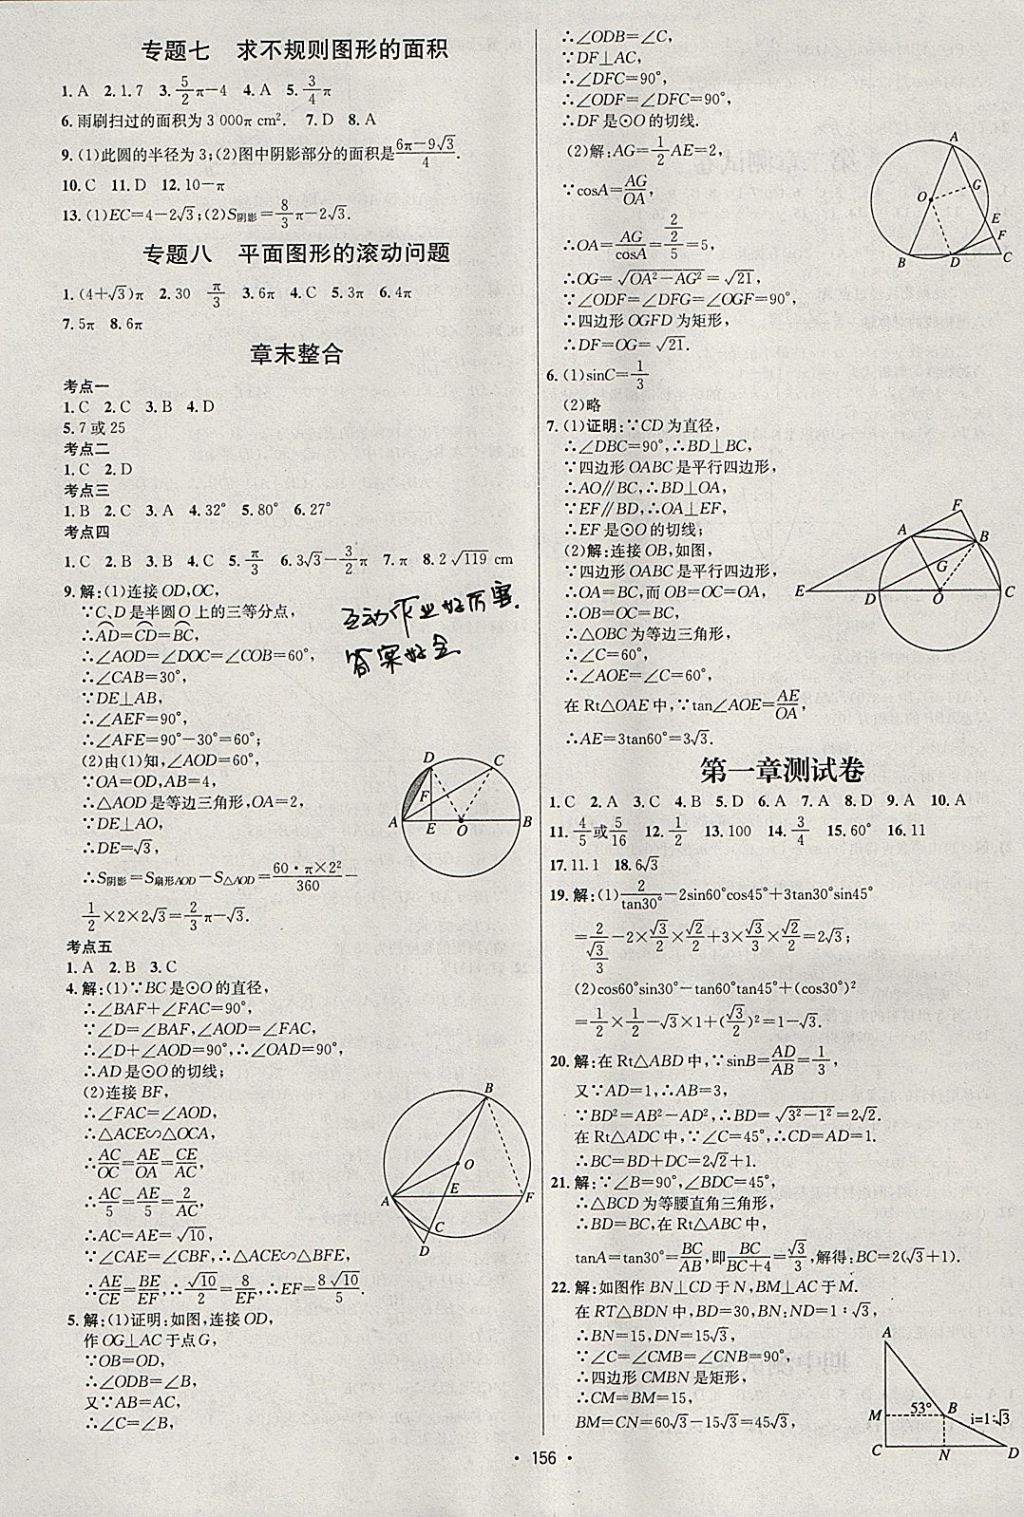 专题七 求不规则图形的面积
1.A 2.1.7 3.5/2π-4 4.A 5.3/4π
6.雨刷扫过的面积为3 000π cm². 7.D 8.A
9.(1)此圆的半径为3;(2)图中阴影部分的面积是(6π-9√3)/4.
10.C 11.D 12.10-π
13.(1)EC=4-2√3;(2)S阴影=8/3π-2√3.
专题八 平面图形的滚动问题
1.(4+√3)π 2.30 π/3 3.6π 4.C 5.3π 6.4π
7.5π 8.6π
章末整合
考点一
1.C 2.C 3.B 4.D
5.7或25
考点二
1.C 2.D
考点三
1.B 2.C 3.A 4.32° 5.80° 6.27°
考点四
1.C 2.B 3.B 4.C 5.π/3 6.3√3-3/2π 7.π 8.2√119 cm
9.解:(1)连接OD,OC,
∵C,D是半圆O上的三等分点,
∴AD=CD=BC,
∴∠AOD=∠DOC=∠COB=60°,
∴∠CAB=30°,
∵DE⊥AB,
∴∠AEF=90°,
∴∠AFE=90°-30°=60°;
(2)由(1)知,∠AOD=60°,
∵OA=OD,AB=4,
∴△AOD是等边三角形,OA=2,
∵DE⊥AO,
∴DE=√3,
∴S阴影=S扇形AOD-S△AOD=(60·π×2²)/360-
1/2×2×2√3=2/3π-√3.
互动作业好厉害.
答案好全
D C F A E O B
考点五
1.A 2.B 3.C
4.解:(1)∵BC是⊙O的直径,
∴∠BAF+∠FAC=90°,
∵∠D=∠BAF,∠AOD=∠FAC,
∴∠D+∠AOD=90°,∴∠OAD=90°,
∴AD是⊙O的切线;
(2)连接BF,
∴∠FAC=∠AOD,
∴△ACE∽△OCA,
∴AC/OC=AE/OA=CE/AC,
∴AC/5=AE/5=2/AC,
∴AC=AE=√10,
∵∠CAE=∠CBF,∴△ACE∽△BFE,
∴AE/CE=BE/EF,∴√10/2=8/EF,∴EF=8√10/5.
B O E A F C D
5.解:(1)证明:如图,连接OD,
作OG⊥AC于点G,
∵OB=OD,
∴∠ODB=∠B,
又∵AB=AC,
∴∠C=∠B,
∴∠ODB=∠C,
∵DF⊥AC,
∴∠DFC=90°,
∴∠ODF=∠DFC=90°,
∴DF是⊙O的切线.
(2)解:AG=1/2AE=2,
∵cosA=AG/OA,
∴OA=AG/cosA=2/(2/5)=5,
∴OG=√(OA²-AG²)=√21,
∵∠ODF=∠DFG=∠OGF=90°,
∴四边形OGFD为矩形,
∴DF=OG=√21.
A G O E F B D C
6.(1)sinC=1/3
(2)略
7.(1)证明:∵CD为直径,
∴∠DBC=90°,∴BD⊥BC,
∵四边形OABC是平行四边形,
∴AO∥BC,∴BD⊥OA,
∵EF∥BD,∴OA⊥EF,
∴EF是⊙O的切线;
(2)解:连接OB,如图,
∵四边形OABC是平行四边形,
∴OA=BC,而OB=OC=OA,
∴OB=OC=BC,
∴△OBC为等边三角形,
∴∠C=60°,
∴∠AOE=∠C=60°,
在Rt△OAE中,∵tan∠AOE=AE/OA,
∴AE=3tan60°=3√3.
F A B G E D O C
第一章测试卷
1.C 2.A 3.C 4.B 5.D 6.A 7.A 8.D 9.A 10.A
11.4/5或5/16 12.1/2 13.100 14.3/4 15.60° 16.11
17.11.1 18.6√3
19.解:(1)2/tan30°-2sin60°cos45°+3tan30°sin45°
=2/(√3/3)-2×√3/2×√2/2+3×√3/3×√2/2=2√3;
(2)cos60°sin30°-tan60°tan45°+(cos30°)²
=1/2×1/2-√3×1+(√3/2)²=1-√3.
20.解:在Rt△ABD中,∵sinB=AD/AB=1/3,
又∵AD=1,∴AB=3,
∵BD²=AB²-AD²,∴BD=√(3²-1²)=2√2.
在Rt△ADC中,∵∠C=45°,∴CD=AD=1.
∴BC=BD+DC=2√2+1.
21.解:∵∠B=90°,∠BDC=45°,
∴△BCD为等腰直角三角形,
∴BD=BC,在Rt△ABC中,
tanA=tan30°=BC/AB,即BC/(BC+4)=√3/3,解得:BC=2(√3+1).
22.解:如图作BN⊥CD于N,BM⊥AC于M.
在RT△BDN中,BD=30,BN:ND=1:√3,
∴BN=15,DN=15√3,
∵∠C=∠CMB=∠CNB=90°,
∴四边形CMBN是矩形,
∴CM=BM=15,
BM=CN=60√3-15√3=45√3,
A 53° B i=1:√3 M C N D
· 156 ·